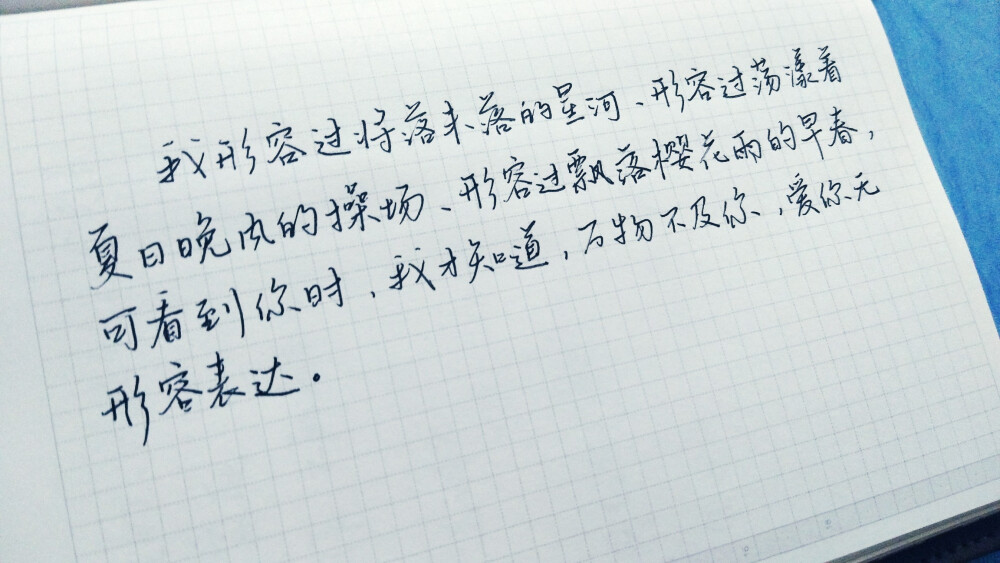 我形容过将落未落的星河、形容过荡漾着
夏日晚风的操场、形容过飘落樱花雨的早春，
可看到你时，我才知道，万物不及你，爱你无
形容表达。